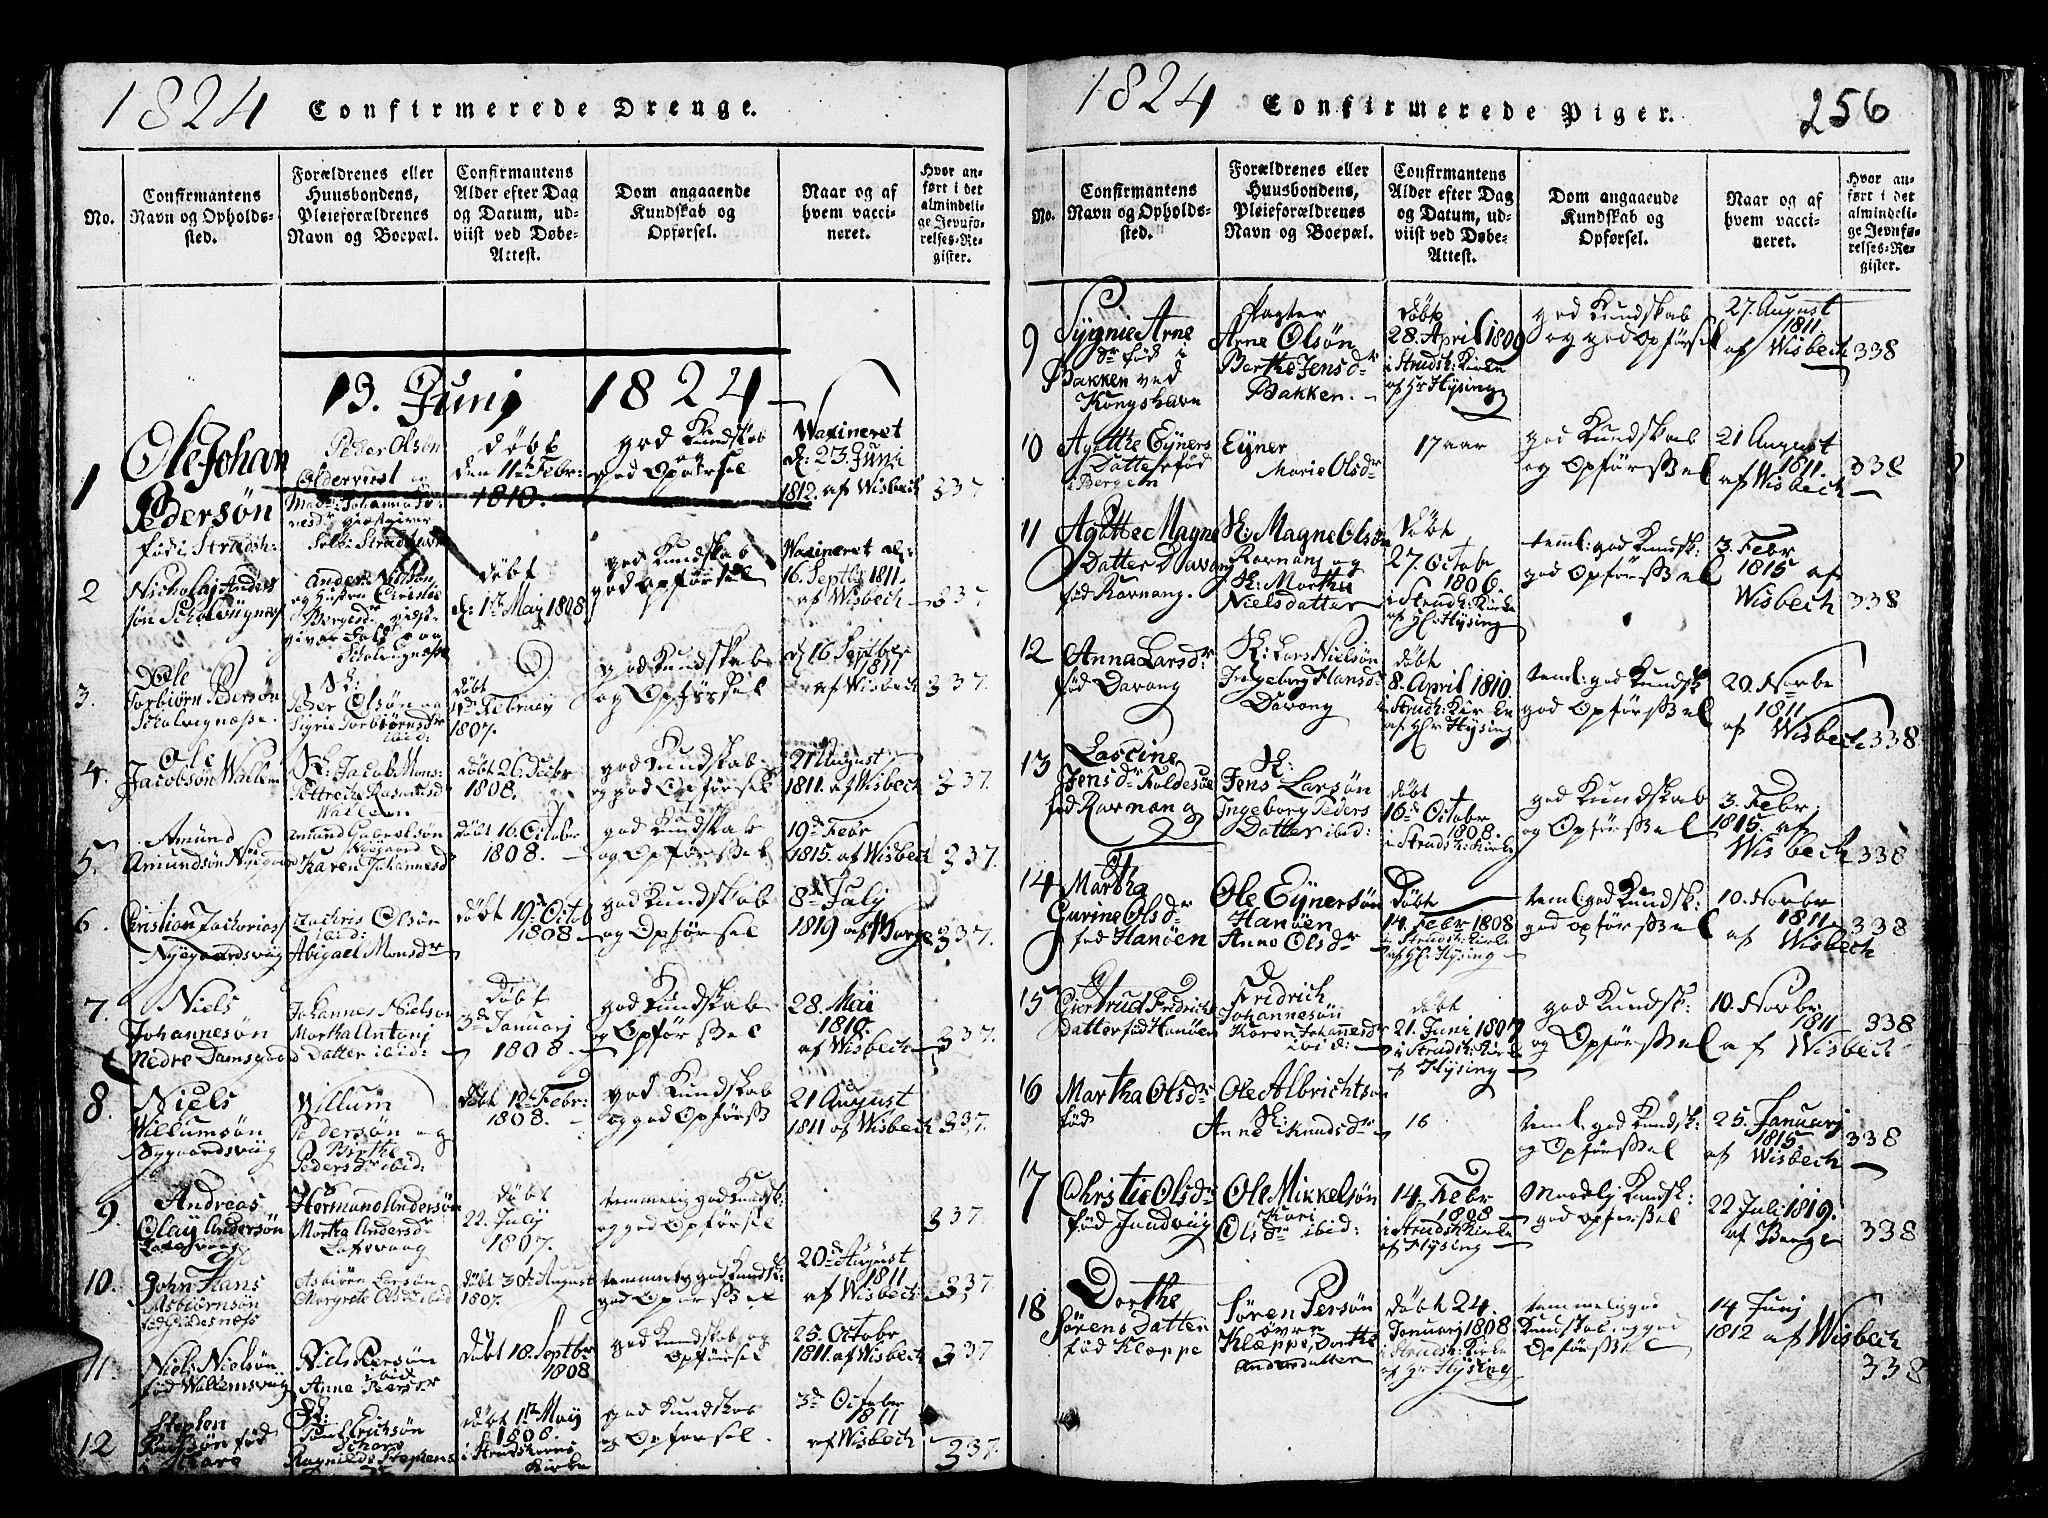 1824 Confirmerede Drenge.
No.
Confirmantens
Navn og Opholds-
sted.
Forældrenes eller
Huusbondens,
Pleieforældrenes
Navn og Boepæl.
Confirmantens
Alder efter Dag
og Datum, ud-
viist ved Døbe-
Attest.
Dom angaaende
Kundskab og
Opførsel.
Naar og af
hvem vacci-
neret.
Hvor an-
ført i det
almindeli-
ge Jevnfø-
relses-Re-
gister.
13. Junij 1824
1
Ole Johan
Pedersøn
fød i Strudsh:
Peder Olsøn
døbt
den 11te Febr:
1810.
god Kundskab
og
god Opførsel
Waxineret
d: 23. Juni
1812. af Wisbech
337
2
Nicholaj Anders
søn
døbt
d: 1te May 1808
god Kundskab
god Opførsel
Waxineret d:
16. Septbr 1811.
af Wisbech
337
3.
Torbiørn Pedersøn
Peder Olsøn og
døbt
Februarij
1807.
god Kundskab
og Opførsel
d 16 Septber
1811
af Wisbech
337.
4.
Ole
Jacobsøn Wallem
døbt 26 Decbr
1808.
god Kundskab
og god Opførsel
21 August
1811. af Wisbech
337.
5.
Amund
Amundsøn
Karen Johannesd
Døbt 16. Octobr
1808.
god Kundskab
og Opførssel
19de Febr
1815. af Wisbech
337.
6.
Cristian Zachariass
Nygaardsviig
Zachris Olsøn
ibid:
Abigael Monsdr
døbt 19de Octob
1808
god Kundskab
og Opførsel
8de July
1819 af Borge
337.
7.
Niels
Johannesøn
Nedre Damsgaard
Johannes Nielsøn
Martha Antonj
Datter ibid:
Døbt
3de Januarj
1808
god Kundskab
og Opførssel
28. Maii
1810.
af Wisbech
337.
8.
Niels
Willumsøn
Nygaardsviig
Willum
Pedersøn og
Birthe
Pedersdr ibid:
døbt 12te Febr:
1808.
god Kundskab
og god Opførss
21 August
1811 af Wisbech
337.
9.
Andreas
Olaij Andersøn
Laxevaag
Hermund Andersøn
Martha Andersdr
Laxevaag
døbt
22. Julij
1807.
temmelig god Kundsk:
og god Opførsel
337.
10.
John Hans
Asbiørnsøn
Asbiørn Larsøn
Margrete Olsdr ibid
døbt 30te August
1807.
temmelig god Kundsk:
god Opførssel
20de August
1811
af Wisbech
337.
11.
Niels Nielsøn
fød Wallemsviig
Niels Persøn
ibid
Anne
Døbt 18. Septbr
1808
god Kundskab og
Opførsel
25. Octobr
1811. af Wisbech
337
12
Stephen
Poulsøn fød
i
Poul Ericksøn
Ragnilde Stephens
Døbt 1te May
1806.
i Strudshavns
Kirke
god Kundskab
og Opførsel.
3de October
1811
af Wisbech
337.
1824 Confirmerede Piger. 256
No.
Confirmantens
Navn og Opholds-
sted.
Forældrenes eller
Huusbondens,
Pleieforældrenes
Navn og Boepæl.
Confirmantens
Alder efter Dag
og Datum, ud-
viist ved Døbe-
Attest.
Dom angaaende
Kundskab og
Opførsel.
Naar og af
hvem vacci-
neret.
Hvor an-
ført i det
almindeli-
ge Jevnfø-
relses-Re-
gister.
9
Sygnie Arne
dr fød i
Bakken ved
Kongshavn
Pagter
Arne Olsøn
Berthe Jensdr
Bakken.
døbt
28. April 1809
i Strudsh: Kirke
af Hr Hysing
god Kundskab
og god Opførsel
27. August
1811.
af Wisbech
338
10
Agethe Eyners
Datter fød
i Bergen
Eyner
Marie Olsdr
17 aar
god Kundskab
og Opførssel
21 August
1811.
af Wisbech
338
11
Agethe Magne
Datter Davang
fød Ravnang.
S: Magne Olsøn
Ravnang og
K: Martha
Nielsdatter
Døbt
27. Octobr
1806.
i Strudsh: Kirke
af Hr: Hysing
teml: god Kundsk:
god Opførssel
3. Febr
1815 af
Wisbech
338
12
Anna Larsdr
fød Davang
S: Lars Nielsøn
Ingeborg Hansdr
Davang
døbt
8. April 1810.
i Strudsh: Kirke
af Hr Hysing
teml: god Kundsk
god Opførssel
20. Novbr
1811
af Wisbech
338
13
Lascine
Jensdr
fød Ravnang
S:
Jens Larsøn
Ingeborg Peders
Datter ibid:
døbt
16de Octobr
1808.
i Strudsh: Kirke
god Kundskab
og Opførssel
3. Febr:
1815. af
Wisbech
338
14
Martha
Gurine Olsdr
fød Hanøen
Ole Eynersøn
Hanøen
Anna Olsdr
Døbt
14. Febr 1808
i Strudsh: Kirke
af Hr Hysing
teml: god Kundsk:
god opførssel
10. Novbr
1811
af Wisbech
338
15
Giertrud Fredrichs
datter fød Hanøen
Fridrich
Johannesøn
Karen Johannesdr
ibid:
døbt
21. Juni 1807
i Strudsh: Kirke
af Hysing
god Kundsk:
og Opførssel
10. Novbr
1811
af Wisbech
338
16
Martha Olsdr
fød
Ole Albrichtsøn
K:
Anne Knudsdr
16
teml: god Kundsk:
og Opførssel
25. Januarj
1815
af Wisbech
338
17
Christie Olsdr
fød Janduiig
Ole Mikkelsøn
Kari
Olsdr ibid:
14. Febr
1808
i Strudsh Kirke
af Hysing
Maadelig Kundsk:
god opførssel
22 Juli 1819.
af Borge
338
18
Dorthe
Sørens Datter
fød Kleppe
Søren Persøn
øvre
Kleppe, Dorthe
Andersdatter
Døbt 24.
Januarj 1808
i Strudsh: Kirke
af Hr Hysing
temmelig god
Kundskab, og god
Opførssel
14 Junj
1812 af Wisbech
338